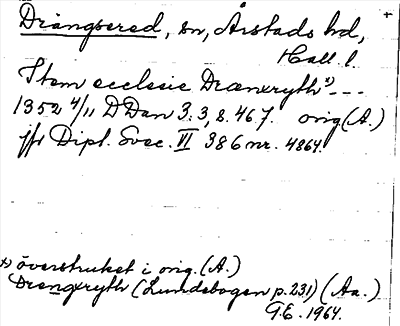 Drängsered, sn, Årstads hd,
Hall. l.
Item ecclesie Drænxryth x) - - -
1352 4/11 DDan 3.3, s. 467. orig (A.)
jfr Dipl. Svec. VI 386 nr. 4864.
x) överstruket i orig. (A.)
Drengxryth (Lundebogen p. 231) (Aa.)
G.E. 1964.